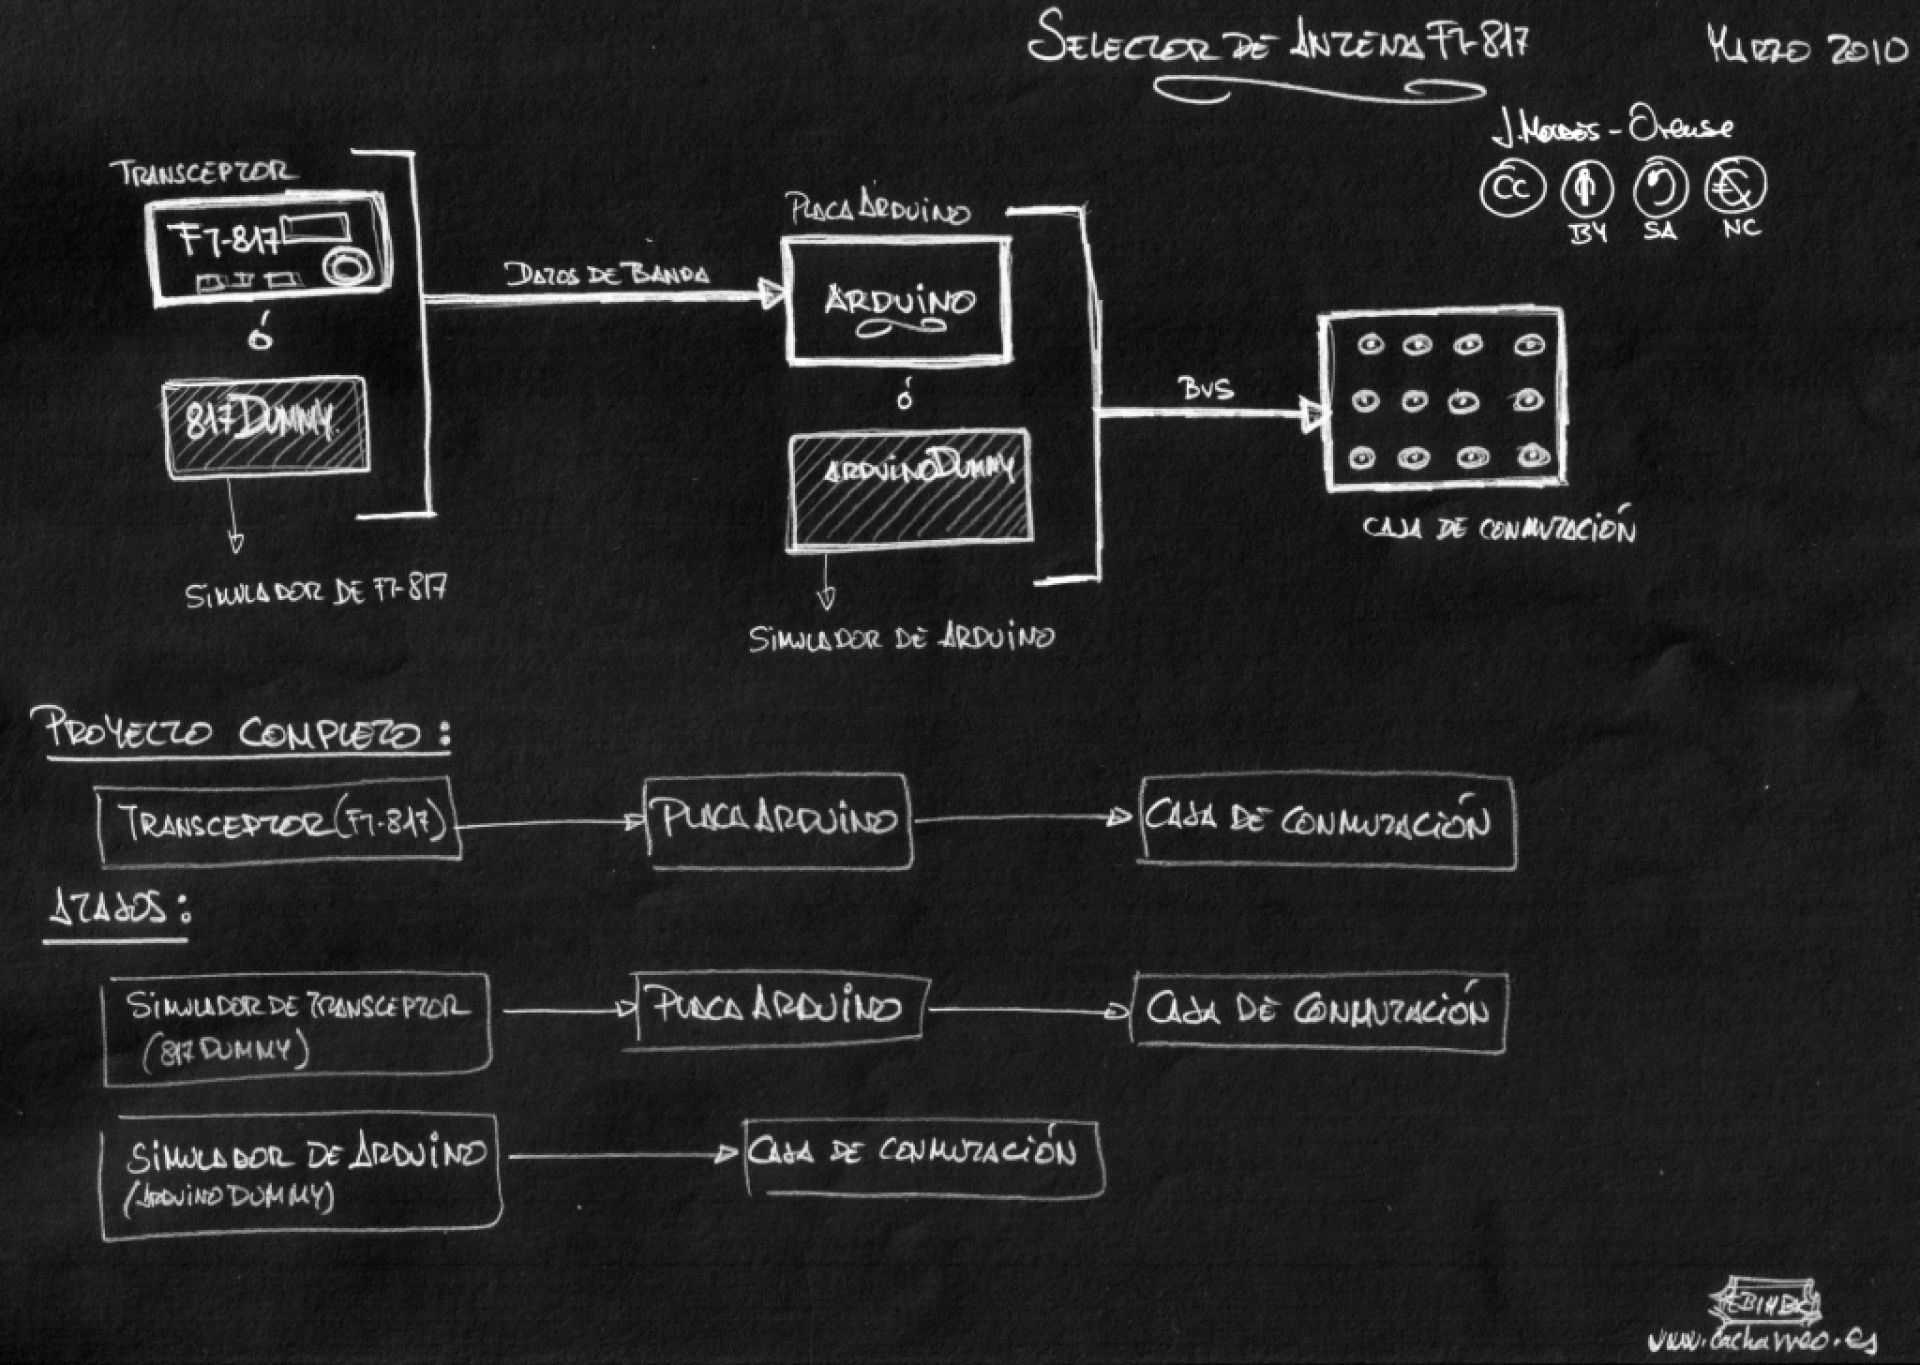 SELECTOR DE ANTENA FT-817
MARZO 2010
CC
BY SA NC
TRANSCEPTOR
FT-817
ó
817DUMMY
SIMULADOR DE FT-817
DATOS DE BANDA
PLACA ARDUINO
ARDUINO
ó
ARDUINODUMMY
SIMULADOR DE ARDUINO
BUS
CAJA DE CONMUTACIÓN
PROYECTO COMPLETO:
TRANSCEPTOR (FT-817)
PLACA ARDUINO
CAJA DE CONMUTACIÓN
ATAJOS:
SIMULADOR DE TRANSCEPTOR
(817 DUMMY)
PLACA ARDUINO
CAJA DE CONMUTACIÓN
SIMULADOR DE ARDUINO
(ARDUINO DUMMY)
CAJA DE CONMUTACIÓN
www.cacharreo.es